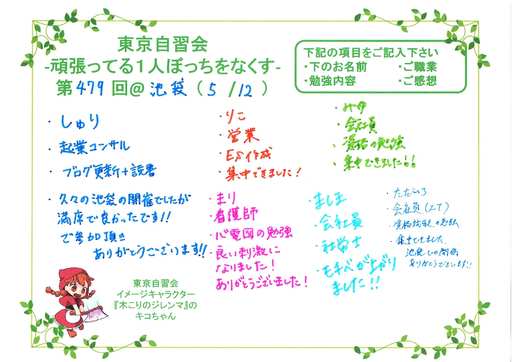 東京自習会
-頑張ってる1人ぼっちをなくす-
第479回@池袋(5/12)
下記の項目をご記入下さい
・下のお名前 ・ご職業
・勉強内容 ・ご感想
・しゅり
・起業コンサル
・ブログ更新+読書
・久々の池袋の開催でしたが
満席で良かったです!!
ご参加頂き
ありがとうございます!!
・りこ
・営業
・ES作成
・集中できました!
・会社員
・資格の勉強
・集中できました!!
・まり
・看護師
・心電図の勉強
・良い刺激に
なりました!
ありがとうございました!
・ましま
・会社員
・社労士
・モチベが上がり
ました!!
・会社員(IT)
・集中できました。
ありがとうございました!!
東京自習会
イメージキャラクター
『木こりのジレンマ』の
キコちゃん